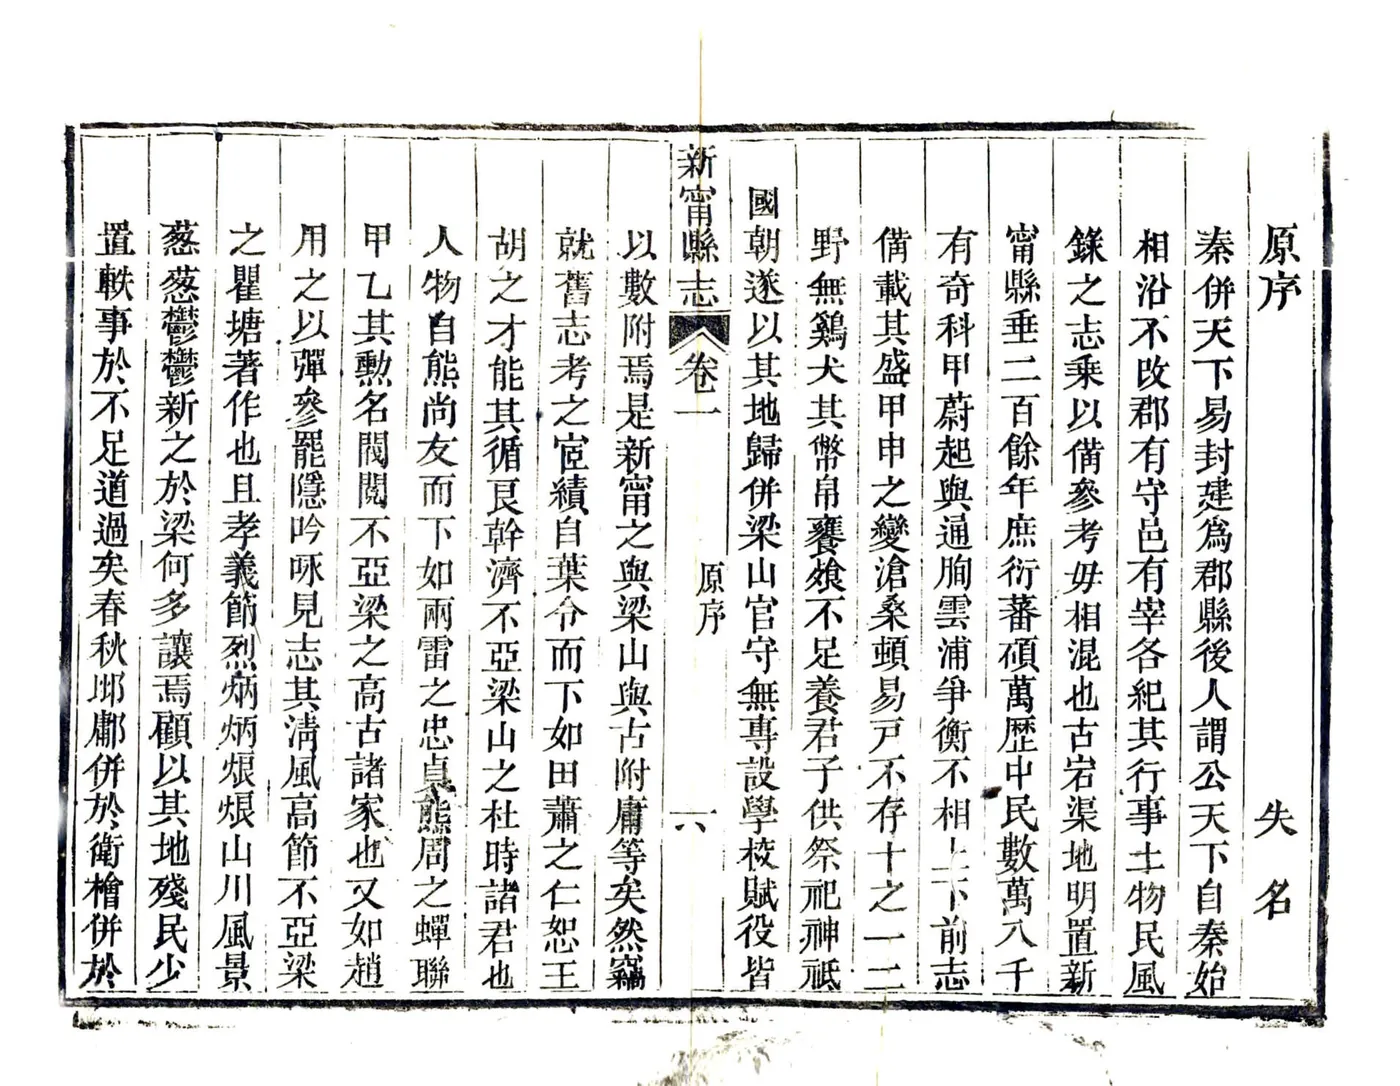 原序 失名
秦併天下易封建爲郡縣後人謂公天下自秦始
相沿不改郡有守邑有宰各紀其行事土物民風
錄之志乘以備參考毋相混也古宕渠地明置新
甯縣垂二百餘年庶衍蕃碩萬歷中民數萬八千
有奇科甲蔚起與通朐雲浦爭衡不相上下前志
備載其盛甲申之變滄桑頓易戸不存十之一二
野無鷄犬其幣帛饔飧不足養君子供祭祀神祇
國朝遂以其地歸併梁山官守無專設學校賦役皆
新甯縣志 卷一 原序 六
以數附焉是新甯之與梁山與古附庸等矣然竊
就舊志考之宦績自葉令而下如田蕭之仁恕王
胡之才能其循良幹濟不亞梁山之杜時諸君也
人物自熊尚友而下如兩雷之忠貞熊周之蟬聯
甲乙其勲名閥閱不亞梁之高古諸家也又如趙
用之以彈參罷隱吟咏見志其清風高節不亞梁
之瞿塘著作也且孝義節烈炳炳烺烺山川風景
葱葱鬱鬱新之於梁何多讓焉顧以其地殘民少
置軼事於不足道過矣春秋邶鄘併於衛檜併於